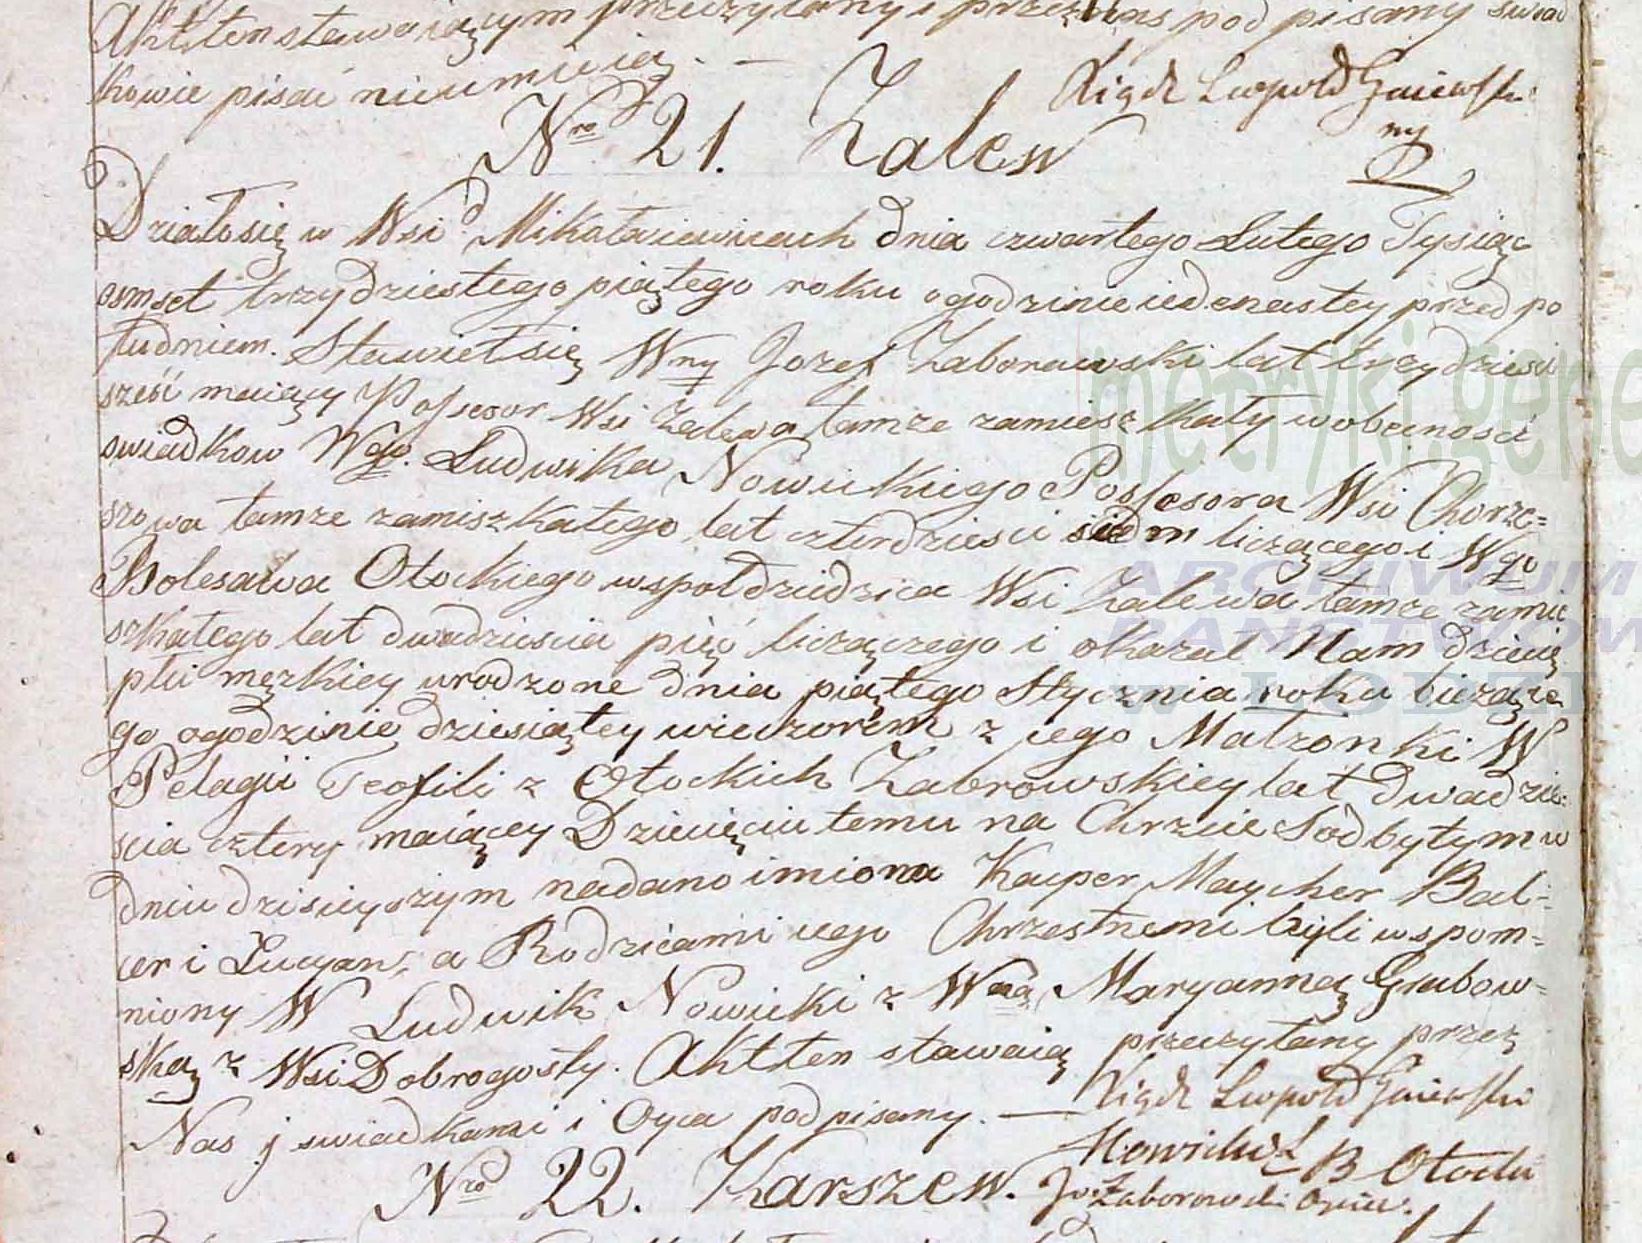 Akt ten stawaiącym przeczytany i przez Nas podpisany swiad
kowie pisać nieumieią. —
Xiądz Leopold Gniewski
mp
Nro 21. Zalew
Działo się w Wsi Mikołaiewicach dnia czwartego Lutego Tysiąc
osmset trzydziestego piątego roku o godzinie iedenastey przed po
łudniem. Stawieł się Wny Jozef Zaborowski lat trzydziesci
sześć maiący Possesor Wsi Zalewa tamze zamieszkały w obecnosci
swiadkow Wgo. Ludwika Nowickiego Possesora Wsi Chorze=
szowa tamze zamiszkałego lat czterdziesci siedm liczącego i Wgo
Bolesawa Otockiego wspołdziedzica Wsi Zalewa tamze zamie
szkałego lat dwadziescia pięć liczączego i okazał Nam dziecię
płci męzkiey urodzone dnia piątego Stycznia roku bieżące
go o godzinie dziesiątey wieczorem z iego Małzonki W
Pelagii Teofili z Otockich Zabrowskiey lat dwadzie=
scia cztery maiącey Dziecięciu temu na Chrzcie S odbytym w
dniu dzisieyszym nadano imiona Kacper Maycher Bal=
cer i Lucyan, a Rodzicami iego Chrzestnemi byli wspom=
niony W Ludwik Nowicki z Wną Maryanną Grabow=
ską z Wsi Dobrogosty. Akt ten stawaią przeczytany przez
Nas j swiadkami i Oyca podpisany. —
Xiądz Leopold Gniewski
Nowicki L B Otocki
Jo: Zaborowski Oyciec.
Nro 22. Karszew.
metryki.gene
ARCHIWUM
PAŃSTWOW
W ŁODZI